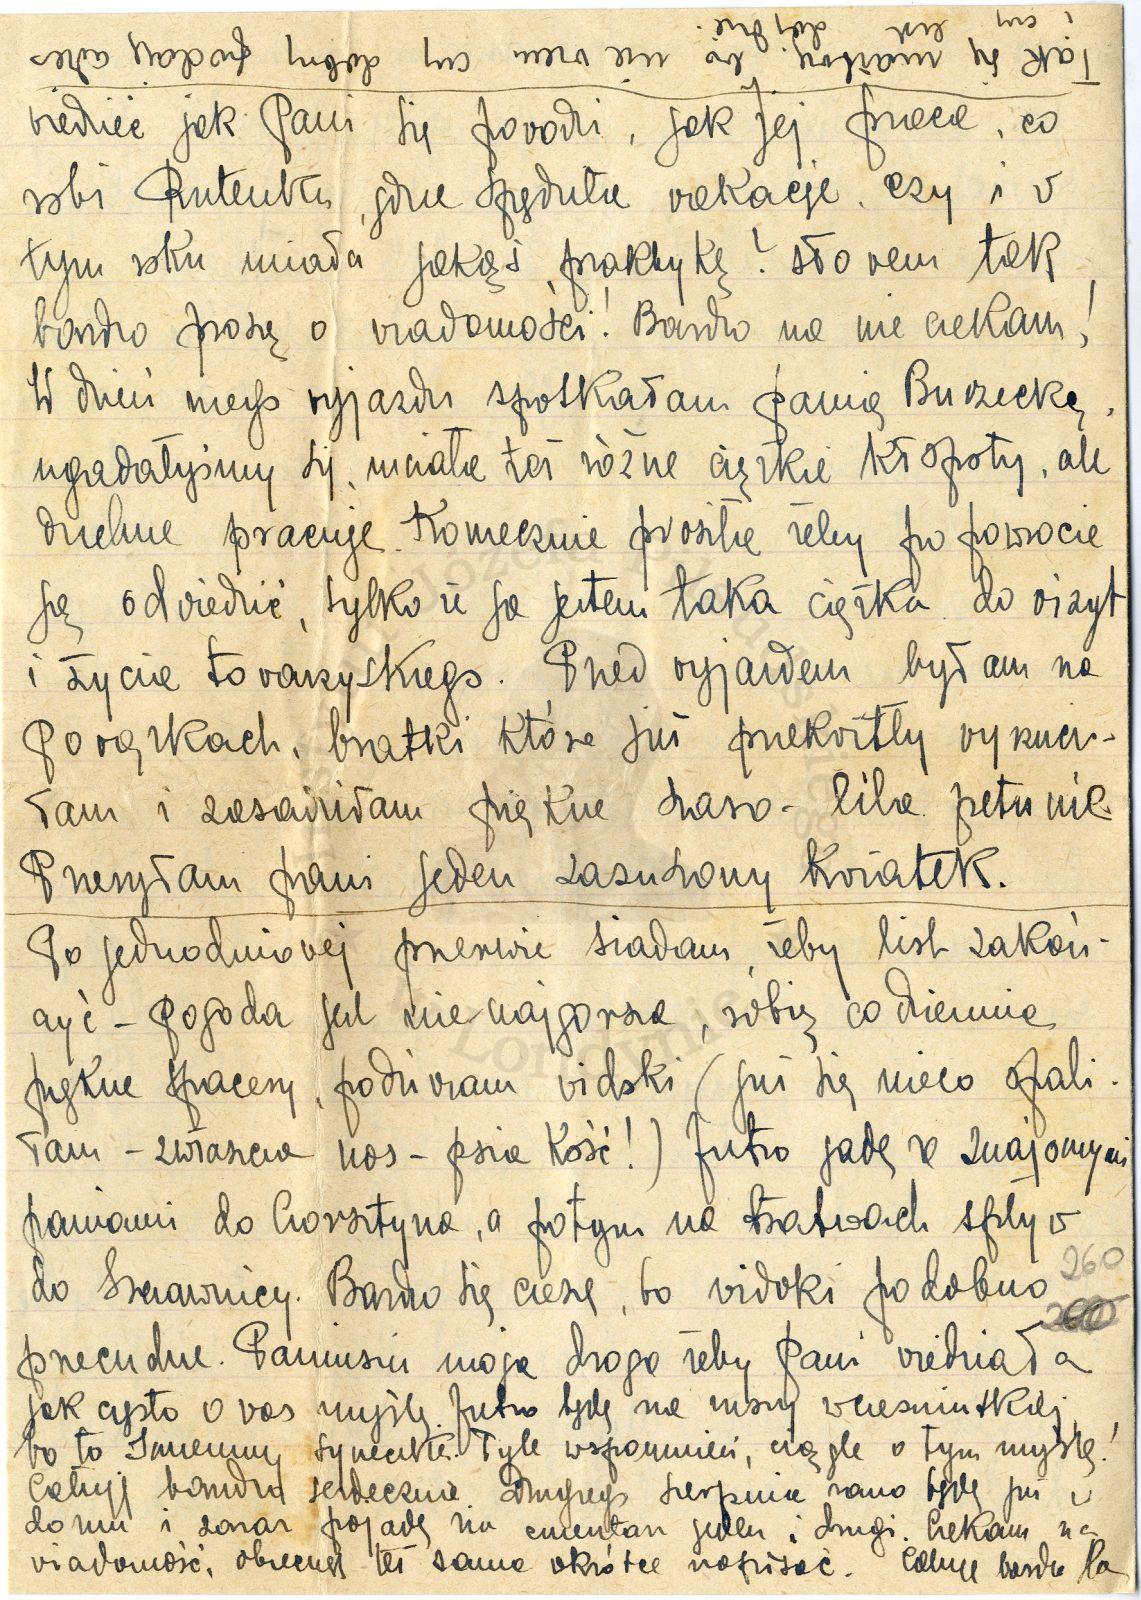 Tak się martwię bo nie wiem czy dobry podaję adres
i czy list dojdzie.
wiedzieć jak Pani się powodzi, jak Jej praca, co
robi Rutenka, gdzie spędziła wakacje. czy i w
tym roku miała jakąś praktykę? słowem tak
bardzo proszę o wiadomości! Bardzo na nie czekam!
W dzień mego wyjazdu spotkałam panią Burzecką,
ugadałyśmy się, miała też różne ciężkie kłopoty, ale
dzielnie pracuje. Koniecznie prosiła żeby po powrocie
ją odwiedzić, tylko że ja jestem taka ciężka do wizyt
i życia towarzyskiego. Przed wyjazdem byłam na
Powązkach, bratki które już przekwitły wyrzuci-
łam i zasadziłam piękne różowo-lila petunie.
Przesyłam pani jeden zasuszony kwiatek.
Po jednodniowej przerwie siadam, żeby list zakoń-
czyć - Pogoda jest nienajgorsza, robię codziennie
piękne spacery, podziwiam widoki (już się nieco opali-
łam - zwłaszcza nos - psia kość!) Jutro jadę z znajomymi
paniami do Czorsztyna, a potym na tratwach spływ
do Szczawnicy. Bardzo się cieszę, bo widoki podobno
260
przecudne. Paniusiu moja droga żeby Pani wiedziała
jak często o was myślę. Jutro będę na mszy wcześniutkiej
bo to Imieniny syneczka. Tyle wspomnień, ciągle o tym myślę!
Całuję bardzo serdecznie. Drugiego sierpnia rano będę już w
domu i zaraz pojadę na cmentarz jeden i drugi. Czekam na
wiadomość, obiecuję też sama wkrótce napisać. Całuję bardzo